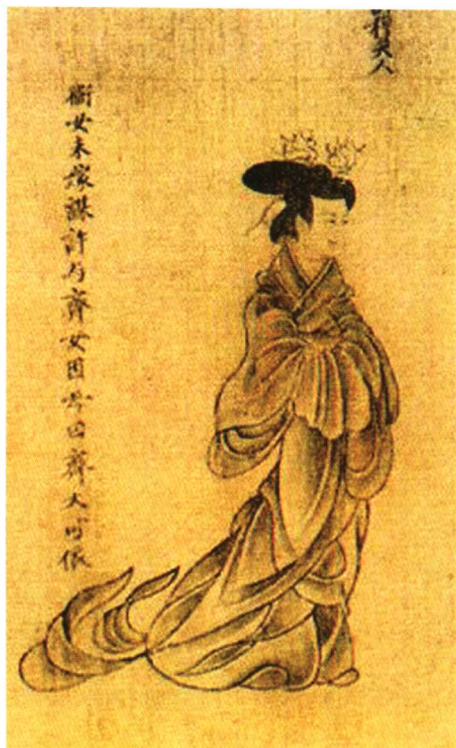 夫人
衛女未嫁謀許与齊女因母曰齊大可依